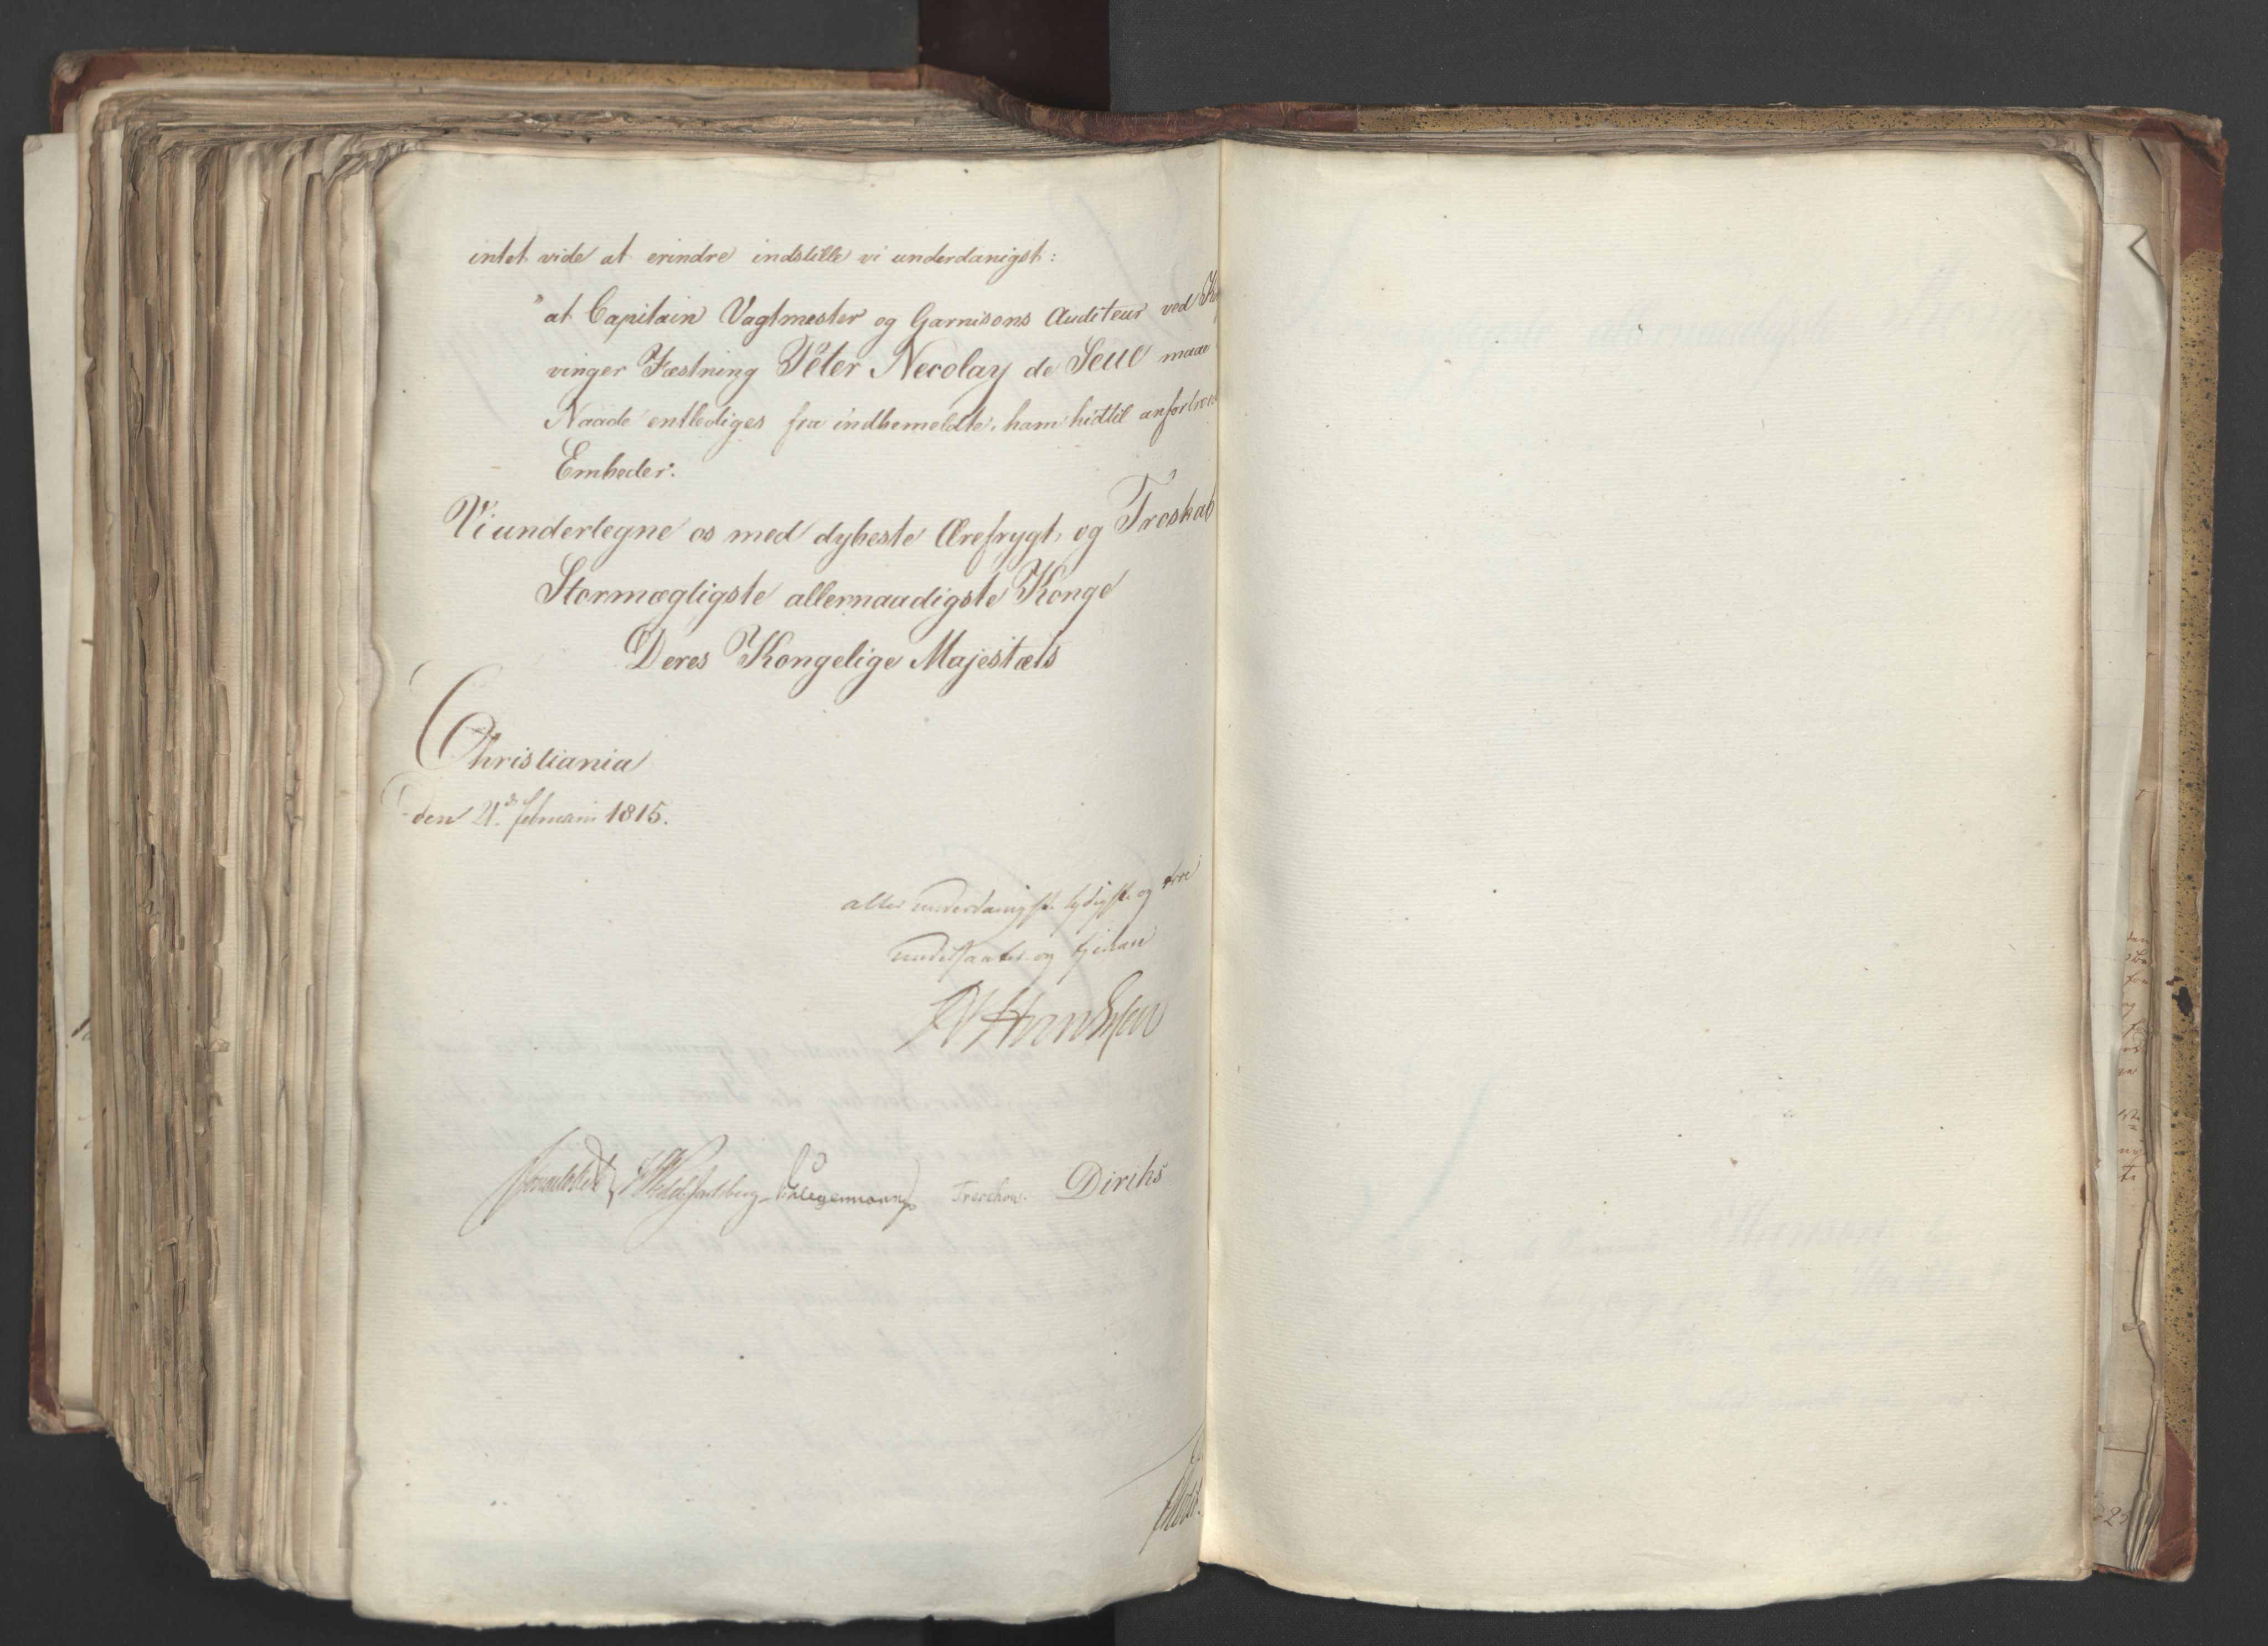 intet vide at erindre indstille vi underdanigst:
"at Capitain Vagtmester og Garnisons Auditeur ved Ko
vinger Fæstning Peter Necolay de Seue maae
Naade entlediges fra indbemeldte, ham hidtil anfortroe
Embeder.
Vi underlegne os med dybeste Ærefrygt, og Troskab
Stormægtigste allernaadigste Konge
Deres Kongelige Majestæts
Christiania
den 21d februari 1815.
aller underdanigste lydigste og troe
undersaatter og tjenere
Sommerhielm Wedel Jarlsberg Hegermann Treschow. Diriks